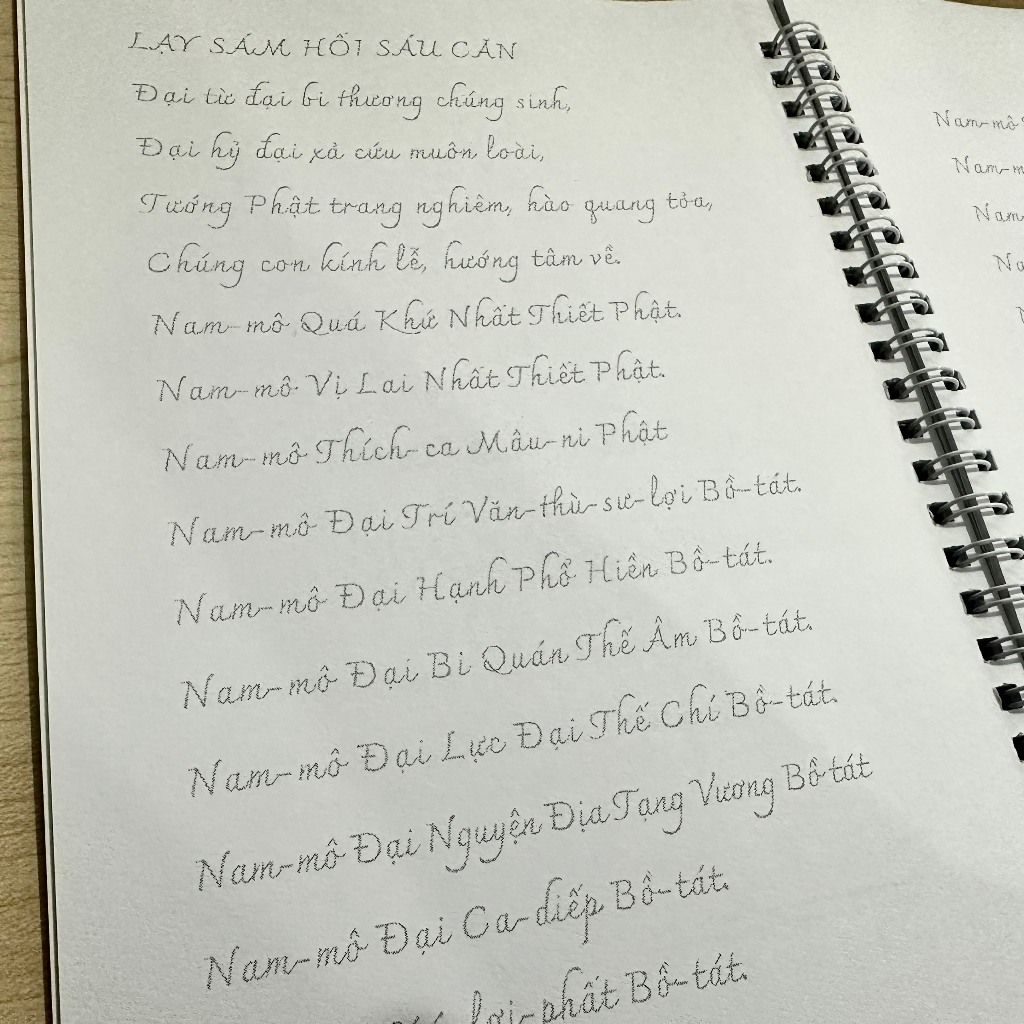 LẠY SÁM HỐI SÁU CĂN
Đại từ đại bi thương chúng sinh,
Đại hỷ đại xả cứu muôn loài,
Tướng Phật trang nghiêm, hào quang tỏa,
Chúng con kính lễ, hướng tâm về.
Nam-mô Quá Khứ Nhất Thiết Phật.
Nam-mô Vị Lai Nhất Thiết Phật.
Nam-mô Thích-ca Mâu-ni Phật
Nam-mô Đại Trí Văn-thù-sư-lợi Bồ-tát.
Nam-mô Đại Hạnh Phổ Hiền Bồ-tát.
Nam-mô Đại Bi Quán Thế Âm Bồ-tát.
Nam-mô Đại Lực Đại Thế Chí Bồ-tát.
Nam-mô Đại Nguyện Địa Tạng Vương Bồ tát
Nam-mô Đại Ca-diếp Bồ-tát.
lợi-phất Bồ-tát.
Nam-mô
Nam-m
Nam-
Na